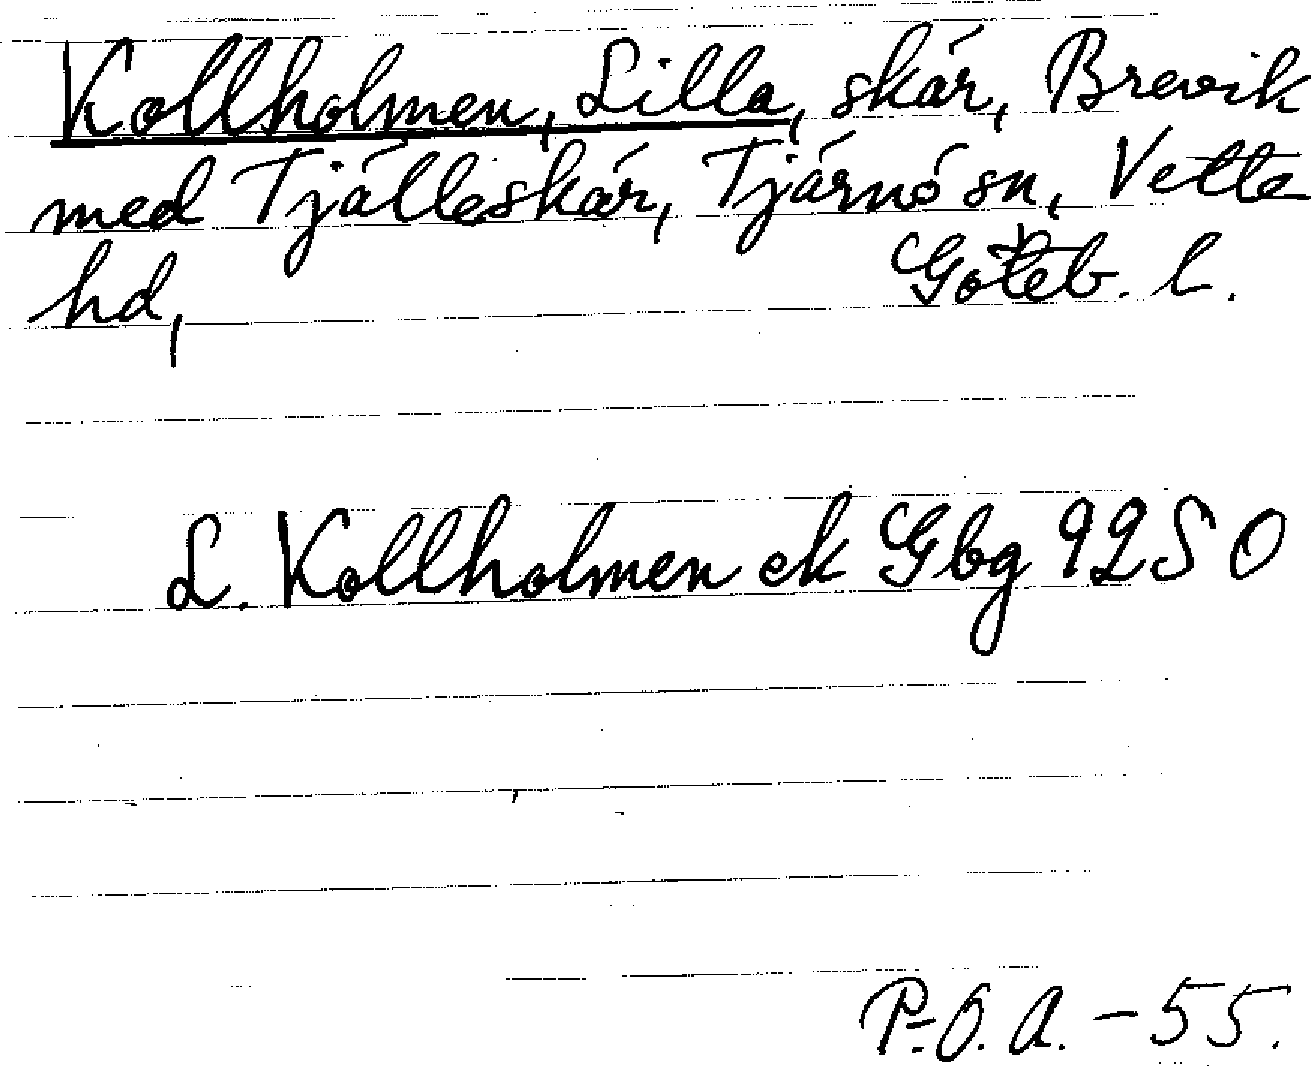 Kollholmen, Lilla, skär, Brevik
med Tjälleskär, Tjärnö sn, Vette
hd, Göteb. l.
L. Kollholmen ek Gbg 92 SO
P.-O. A. - 55.